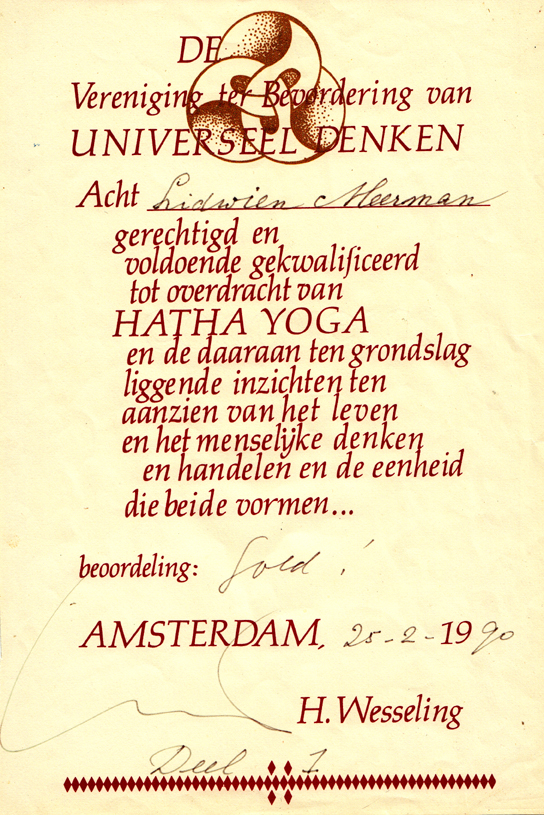 DE
Vereniging ter Bevordering van
UNIVERSEEL DENKEN
Acht Lidwien Meerman
gerechtigd en
voldoende gekwalificeerd
tot overdracht van
HATHA YOGA
en de daaraan ten grondslag
liggende inzichten ten
aanzien van het leven
en het menselijke denken
en handelen en de eenheid
die beide vormen...
beoordeling: Goed!
AMSTERDAM, 25-2-1990
H. Wesseling
Deel 1